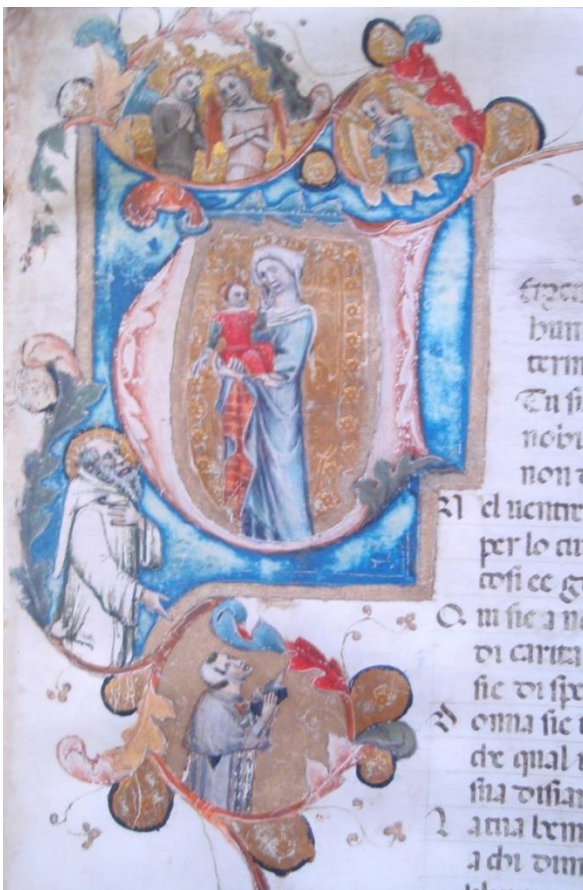 hum
term
Tu si
nobi
non d
N el uentre
per lo cui
cosi ee g
Q ui sie a no
di carita
sie di spe
D onna sie
che qual
sua disia
L a tua beni
a chi dim